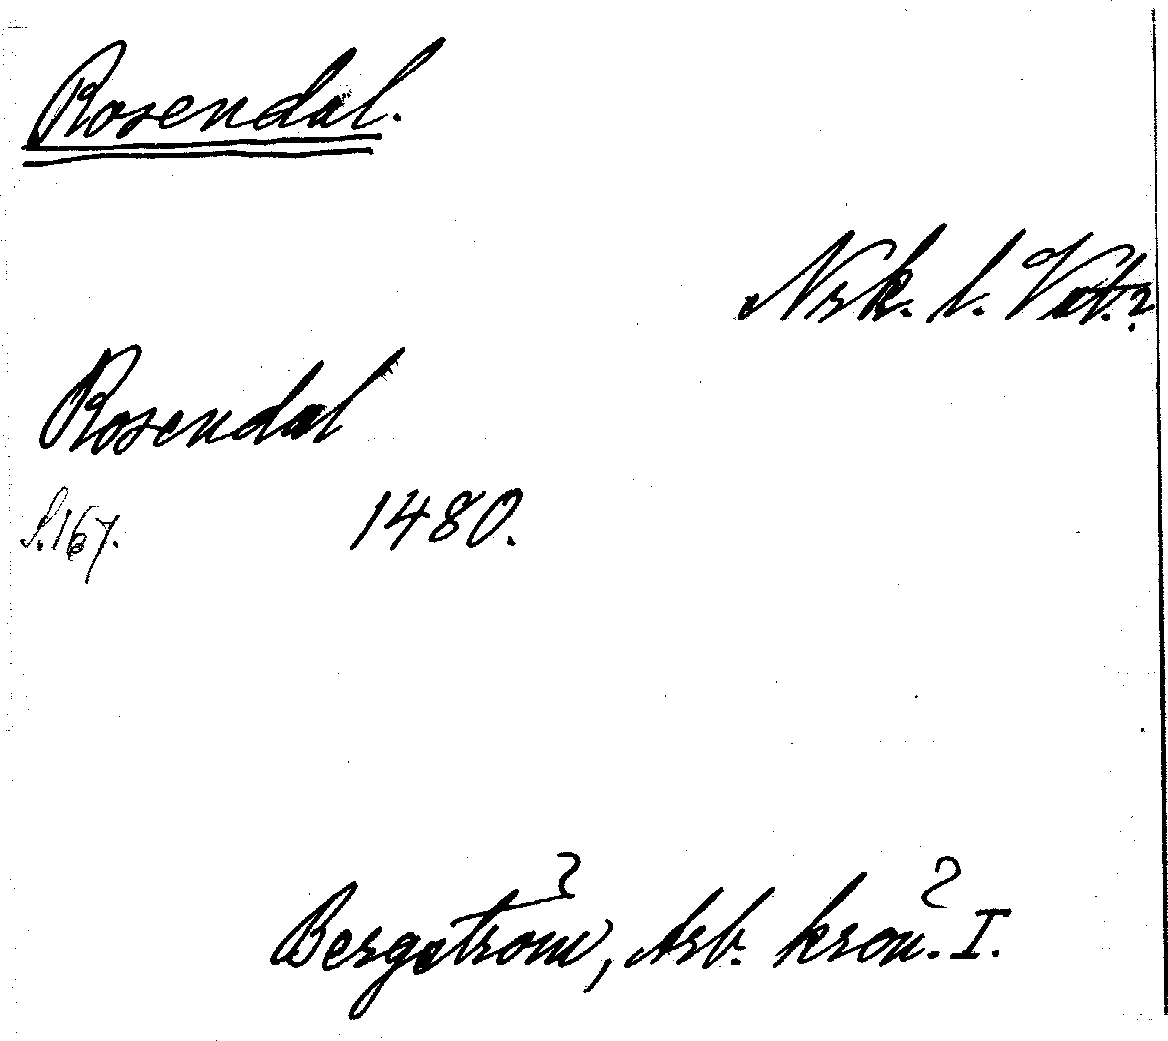 Rosendal.
Nrk. l. Vet.?
Rosendal
S.167.
1480.
Bergström, Arb. krön. I.